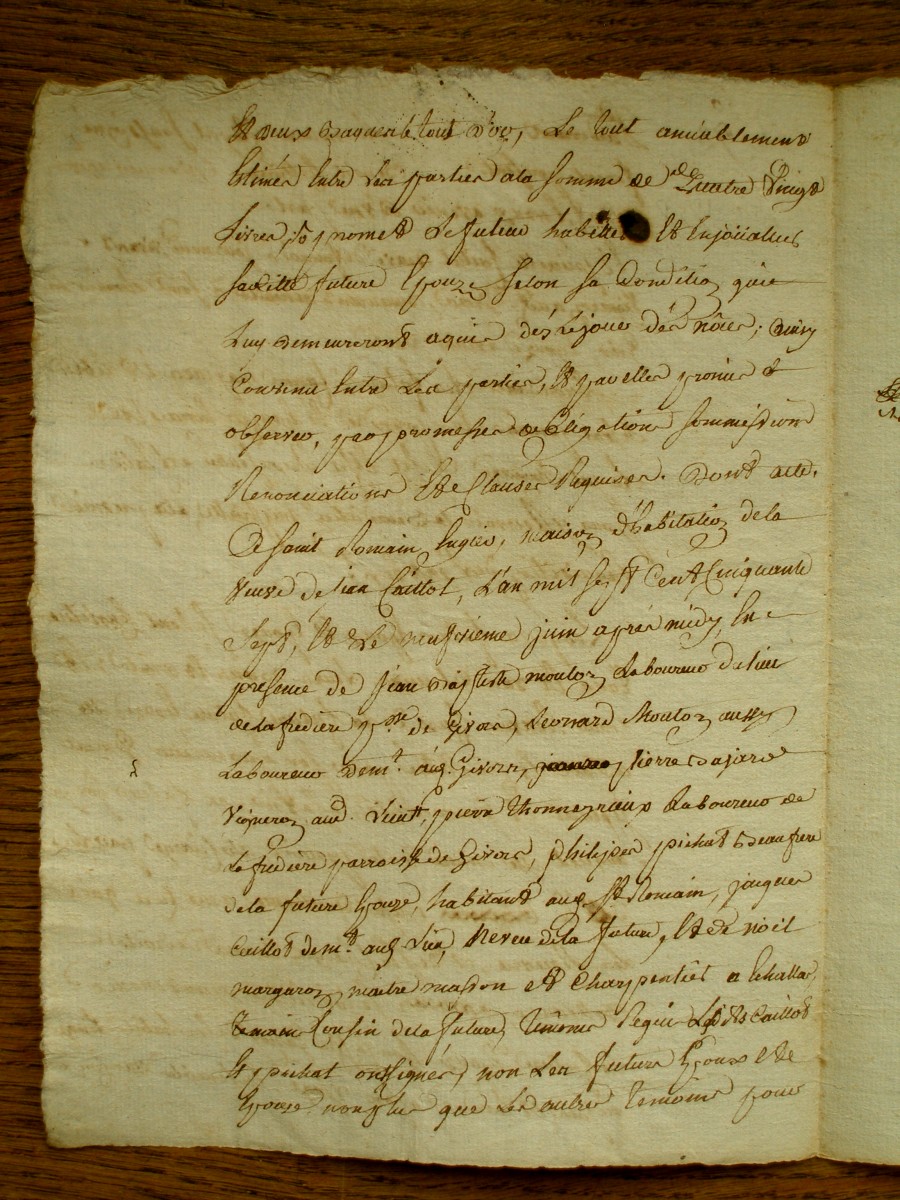 Et deux bagues le tout d'or, Le tout amiablement
Estimés Entre Les parties a la somme de Quatre Vingt
Livres, promet Le futeur habiller Et Enjoüaller
Sa ditte future Epouze selon sa Condition que
Luy demeureront aquis dés Le jour des nôces; ainsy
Convenu Entre Les parties, Et par elles promis
observer, par promesses obligations sommissions
Renonciations Et Clauses Requises. Dont acte.
A saint Romain Engier, maison d'habitation de la
veuve de jean Caillot, L'an mil sept Cent Cinquante
Sept, Et Le neufvieme juin aprés midy, En
presence de jean baptiste mouton Laboureur du lieu
de La fredière psse de Givors, Leonard Mouton aussy
Laboureur demt. aud. Givors, pierre bajard
Vigneron aud. Lieu, pierre Thonnerieux Laboureur de
La fredière parroisse de Givors, philipes pichat beaufrere
de la future Epouze, habitant aud. St Romain, jacques
Caillot demt. aud. Lieu, Neveu de la future, Et Benoit
margaron maitre masson et Charpentier a Echallas,
Cousin de la future, Témoins Requis Lesds Caillot
Et pichat ont signés, non Les futurs Epoux Et
Epouze non plus que Les autres temoins pour